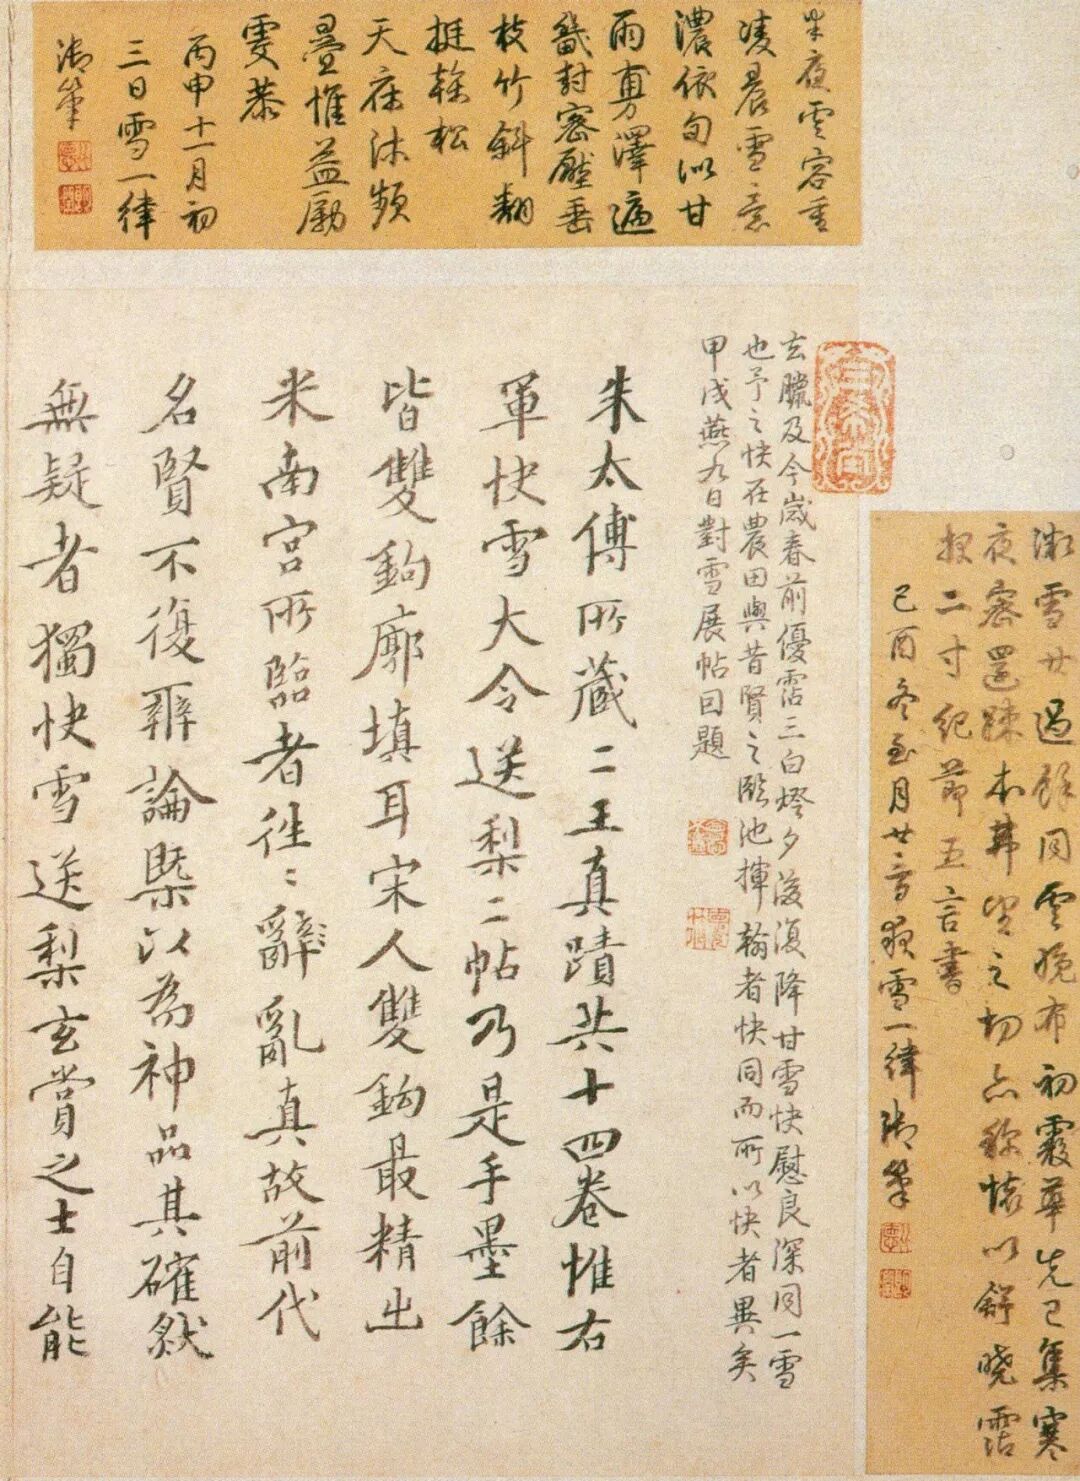 半夜雲容重
凌晨雪意
濃依旬似甘
雨澤遍
畿封密壓垂
枝竹斜翻
挺榦松
天庥沐頻
疊惟益勵
虔恭
丙申十一月初
三日雪一律
御筆
微雪廿過餘同雲晚布初霰華先已集寒
夜密還疎本弗望之切亦稱懷以舒曉霑
報二寸紀節五言書
己酉冬至月廿夜雪一律御筆
玄臘及今歲春前優霑三白燈夕後復降甘雪快慰良深同一雪
也予之快在農田與昔賢之臨池揮翰者快同而所以快者異矣
甲戌燕九日對雪展帖因題
朱太傅所藏二王真蹟共十四卷惟右
軍快雪大令送梨二帖乃是手墨餘
皆雙鉤廓填耳宋人雙鉤最精出
米南宮所臨者往二辭亂真故前代
名賢不復辨論槩以為神品其確然
無疑者獨快雪送梨玄賞之士自能